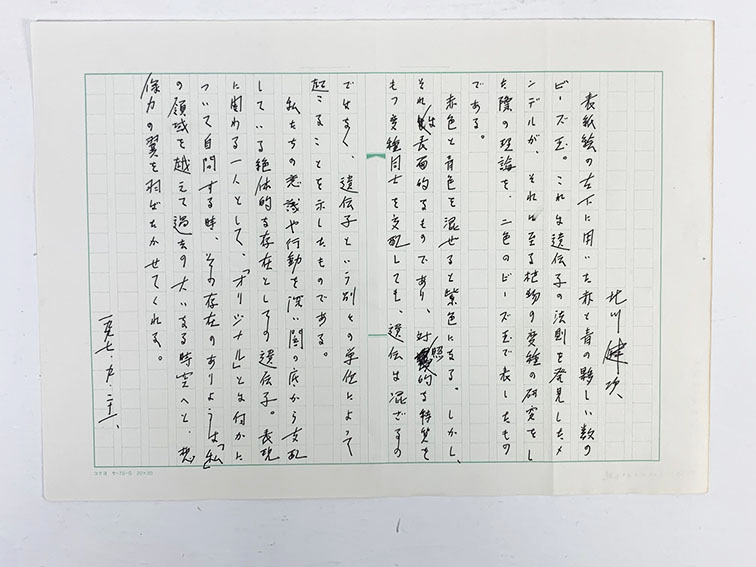 北川健次
表紙絵の左下に用いた赤と青の夥しい数の
ビーズ玉。これは遺伝子の法則を発見したメ
ンデルが、それに至る植物の変種の研究をし
た際の理論を、二色のビーズ玉で表したもの
である。
赤色と青色を混ぜると紫色になる。しかし、
それは表面的なものであり、対照的な特質を
もつ変種同士を交配しても、遺伝は混ざるの
ではなく、遺伝子という別々の単位によって
起こることを示したものである。
私たちの意識や行動を深い闇の底から支配
している絶体的な存在としての遺伝子。表現
に関わる一人として、「オリジナル」とは何かに
ついて自問する時、その存在のありようは、「私」
の領域を越えて過去の大いなる時空へと、想
像力の翼を羽ばたかせてくれる。
一九九七・九・二十一、
コクヨ ケ-70-G 20×20